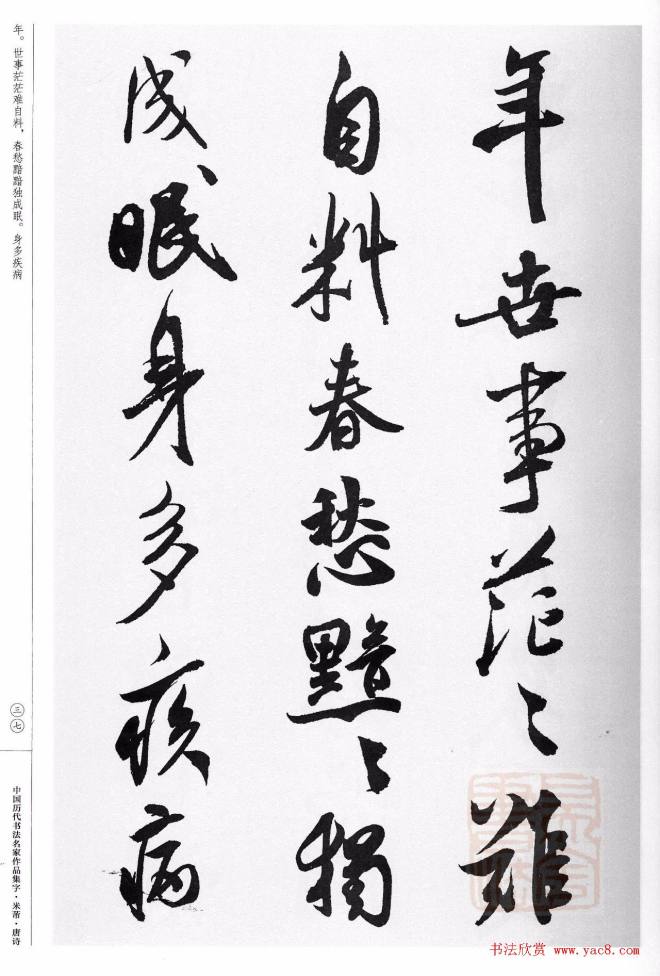 年世事茫〻難
自料春愁黯〻獨
成眠身多疾病
年。世事茫茫难自料，春愁黯黯独成眠。身多疾病
三七
中国历代书法名家作品集字·米芾·唐诗
书法欣赏 www.yac8.com